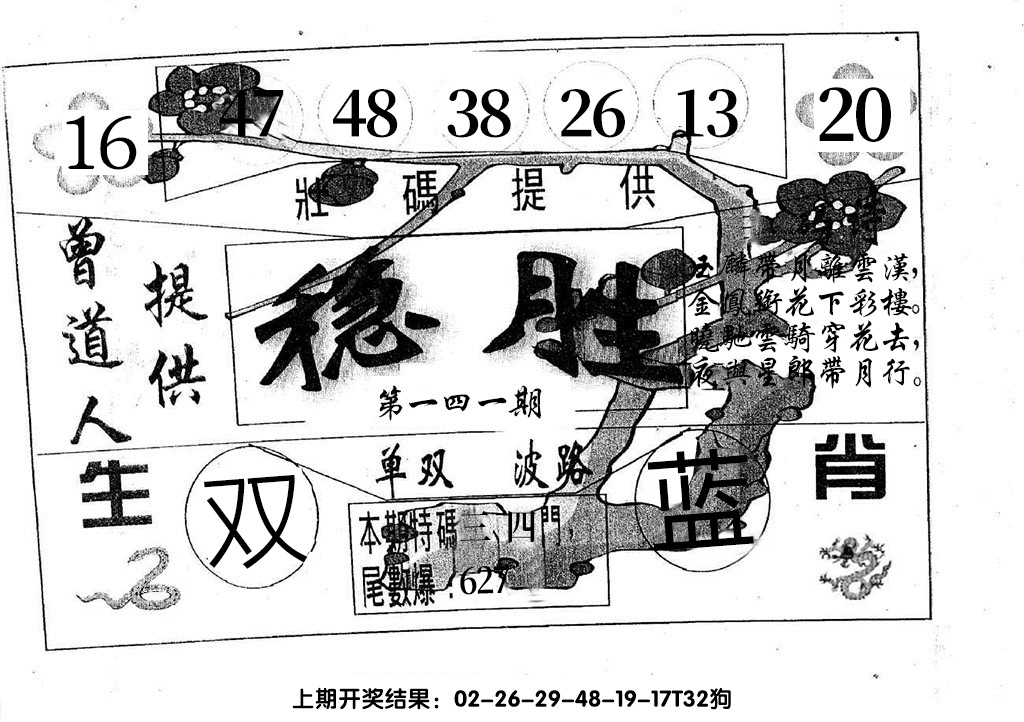 16 47 48 38 26 13 20
壯碼提供
曾道人
提供
稳胜
第一四一期
玉麟帶月離雲漢,
金鳳銜花下彩樓。
曉馳雲騎穿花去,
夜與星郎帶月行。
单双 波路
生
双
蓝
肖
本期特碼三、四門,
尾數爆:627
上期开奖结果:02-26-29-48-19-17T32狗